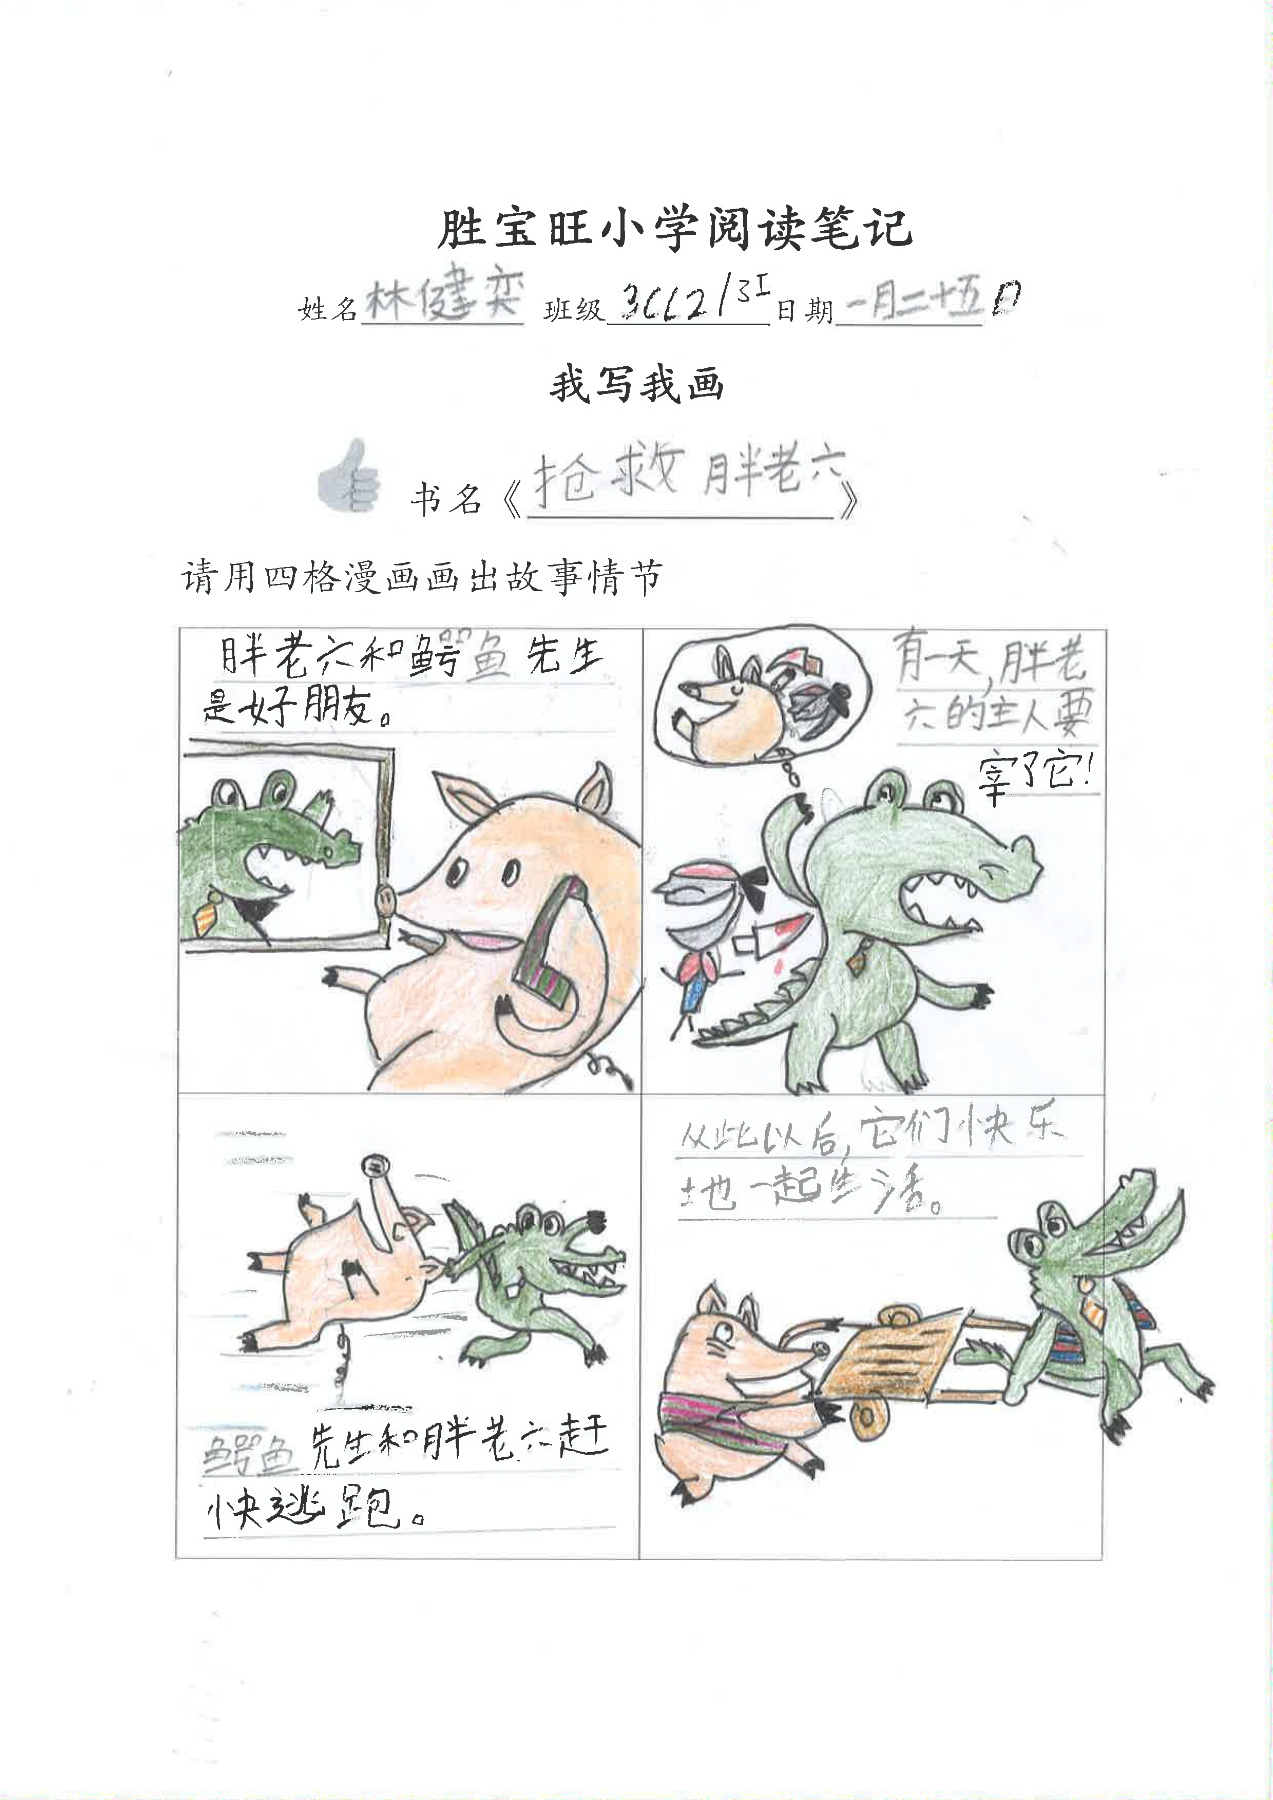 胜宝旺小学阅读笔记
姓名林健奕 班级3CL2/3I日期一月二十五日
我写我画
书名《抢救胖老六》
请用四格漫画画出故事情节
胖老六和鳄鱼先生
是好朋友。
有一天,胖老
六的主人要
宰了它!
鳄鱼先生和胖老六赶
快逃跑。
从此以后,它们快乐
地一起生活。